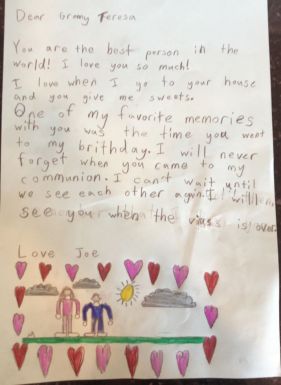 Dear Granny Teresa
You are the best person in the
world! I love you so much!
I love when I go to your house
and you give me sweets.
One of my favorite memories
with you was the time you went
to my brithday. I will never
forget when you came to my
communion. I can't wait until
we see each other again. I will
see you when the is over.
Love Joe